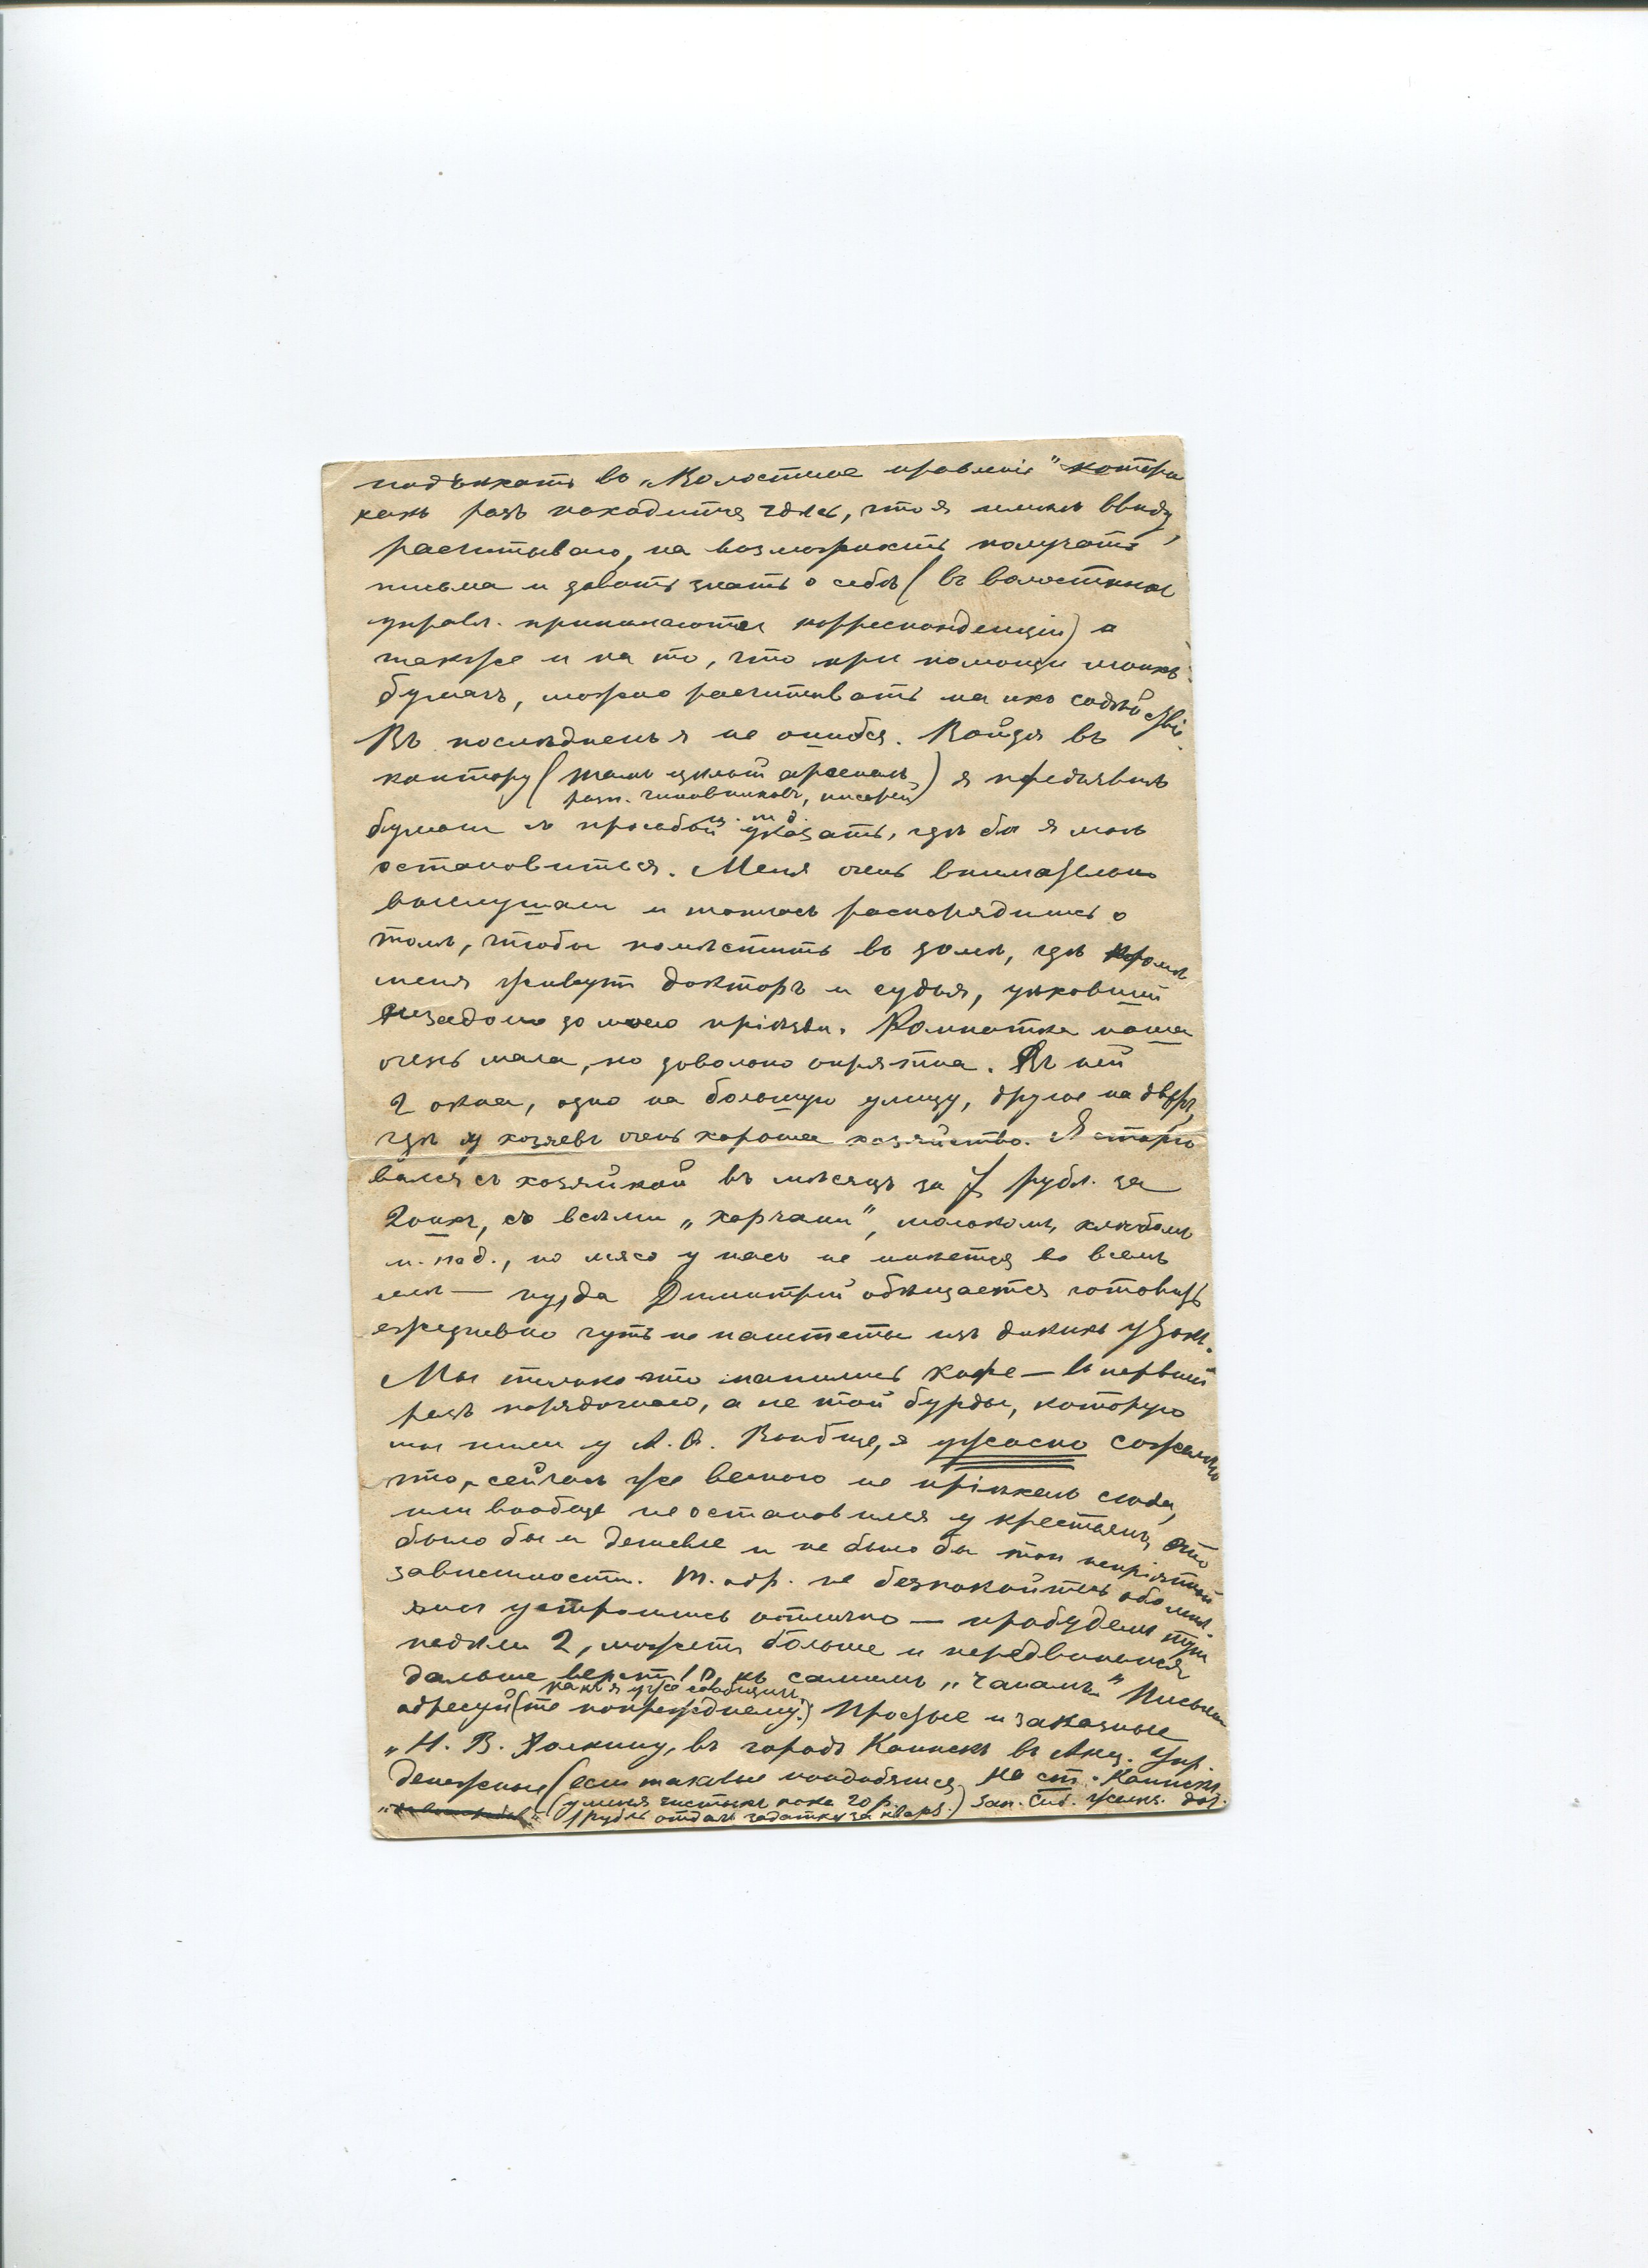 подъѣхать въ „Волостное правленіе" котор
какъ разъ находится здѣсь, что я имѣлъ ввиду,
расчитываю, на возможность получать
письма и давать знать о себѣ (въ волостныхъ
управл. принимаются корреспонденціи) а
также и на то, что при помощи моихъ
бумагъ, можно расчитывать на ихъ содѣйствіе.
Въ послѣднемъ я не ошибся. Войдя въ
контору (тамъ цѣлый арсеналъ
разн. чиновниковъ, писарей и. т д.) я предъявилъ
бумаги съ просьбой указать, гдѣ бы я могъ
остановиться. Меня очень внимательно
выслушали и тотчасъ распорядились о
томъ, чтобы помѣстить въ домѣ, гдѣ кромѣ
меня живутъ докторъ и судья, уѣхавшій
незадолго до моего пріѣзда. Комнатка наша
очень мала, но довольно опрятна. Въ ней
2 окна, одно на большую улицу, другое на дворъ,
гдѣ у хозяевъ очень хорошее хозяйство. Я сторго
вался съ хозяйкой въ мѣсяцъ за 7 рубл. за
2оихъ, со всѣми „харчами", молокомъ, хлѣбомъ
и. под., но мясо у насъ не имѣется во всемъ
селѣ — ну, да Димитрій обѣщается готовить
ежедневно чуть не паштеты изъ дикихъ утокъ.
Мы только что напились кофе — въ первый
разъ порядочнаго, а не той бурды, которую
мы пили у А. О. Вообще, я ужасно сожалѣю
что, сейчасъ же весною не пріѣхалъ сюда,
или вообще не остановился у крестьянъ, это
было бы и дешевле и не было бы той непріятной
зависимости. Т. обр. не безпокойтесь обо мнѣ.
мы устроились отлично — пробудемъ тутъ
недѣли 2, можетъ больше и передвинемся
дальше верстъ 10 къ самымъ „Чанамъ" Письма
адресуйте (какъ я уже сообщилъ) попрежнему. Простые и заказные
„Н. В. Холкину, въ городъ Каинскъ въ Акц. Упр.
Денежные (если таковые понадобятся, на ст. Каинскъ
(у меня чистыхъ пока 20 р. Зап. Сиб. желѣз. дор.
1 рубль отдалъ задатку за кварт.)